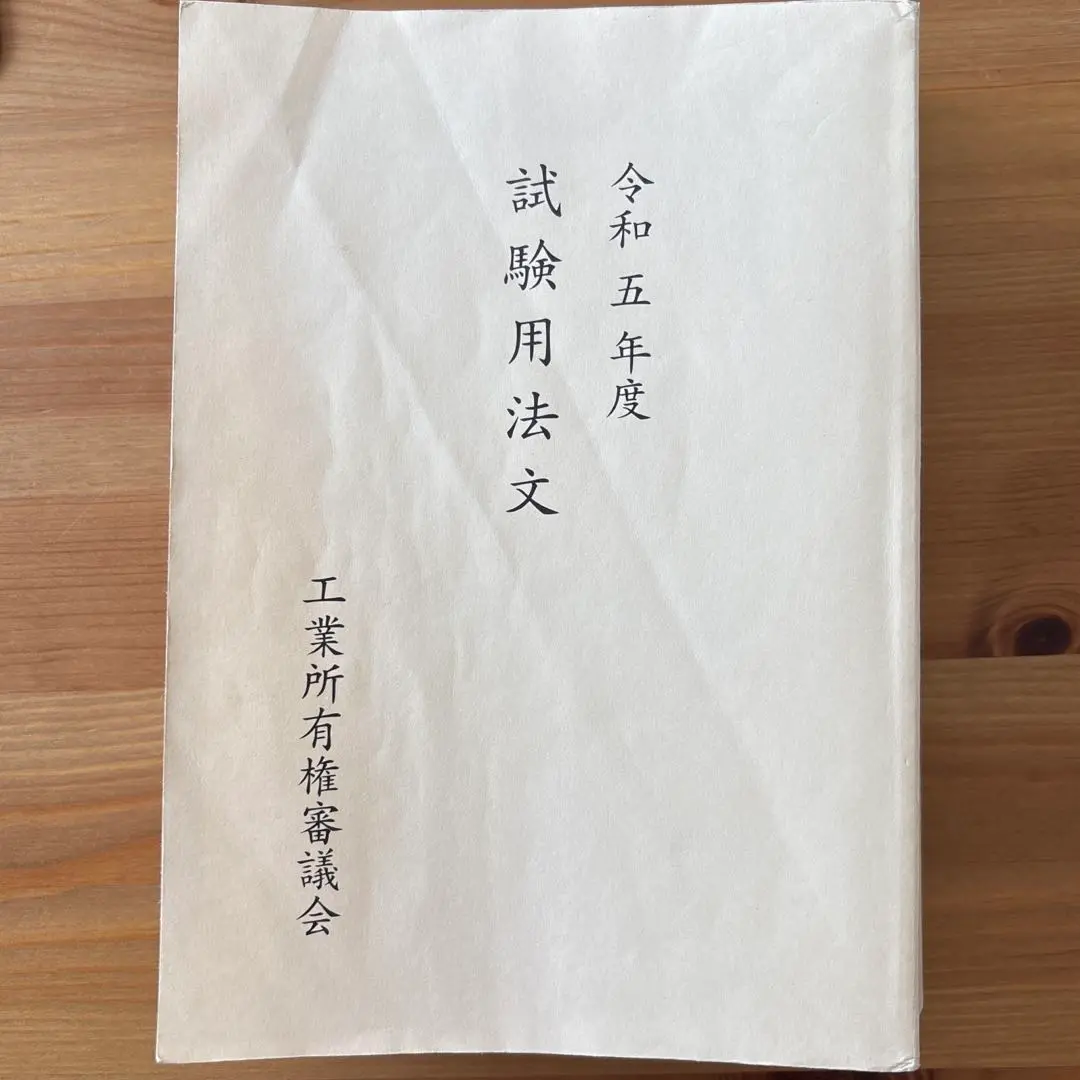 令和五年度
試験用法文
工業所有権審議会